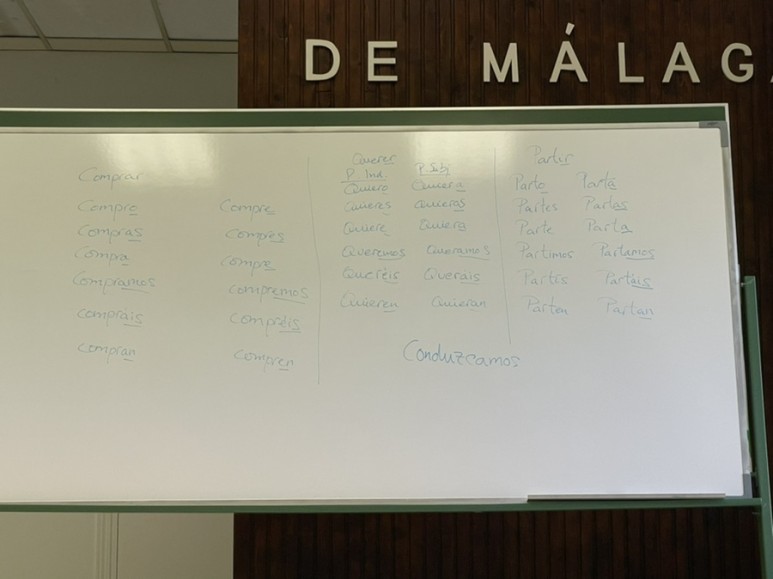 DE MÁLAGA
Comprar
Compro Compre
Compras Compres
Compra Compre
Compramos compremos
compráis compréis
compran compren
Querer
P. Ind. P. Subj
Quiero Quiera
Quieres Quieras
Quiere Quiera
Queremos Queramos
Queréis Queráis
Quieren Quieran
Partir
Parto Partá
Partes Partas
Parte Parta
Partimos Partamos
Partís Partáis
Parten Partan
Conduzcamos